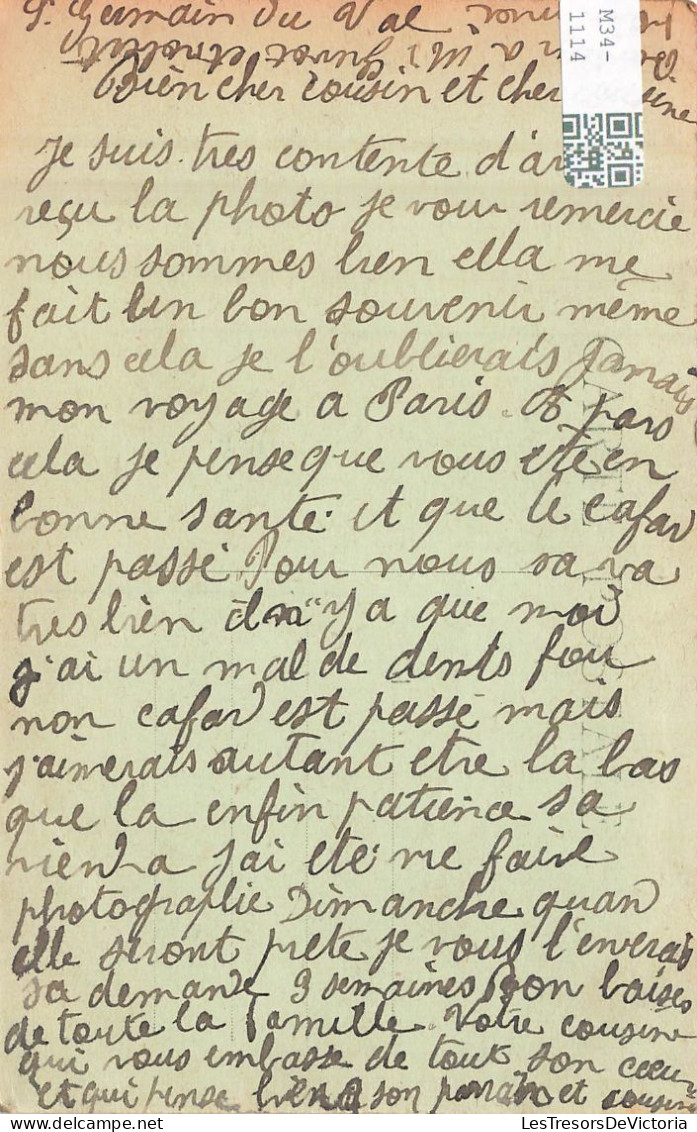 St Germain Du Val
Bien cher cousin et cher
Je suis tres contente d'a
reçu la photo je vour remercie
nous sommes bien ella me
fait bun bon souvenir même
sans cela je l'oublierais jamais
mon voyage a Paris. A pars
cela je pense que vous ete en
bonne santé et que le cafar
est passé Pour nous sa va
tres bien il n'y a que moi
j'ai un mal de dents fou
non cafard est passé mais
j'aimerais autant etre la bas
que la enfin patience sa
viendra j'ai ete me faire
photographie Dimanche quan
elle seront prete je vous l'enverais
sa demande 3 semaines Bon baises
de toute la famille. Votre cousine
qui vous embasse de tout son coeur
et qui pense bien a son parrain et cousine
M34-
1114
CARTE POSTALE
LesTresorsDeVictoria